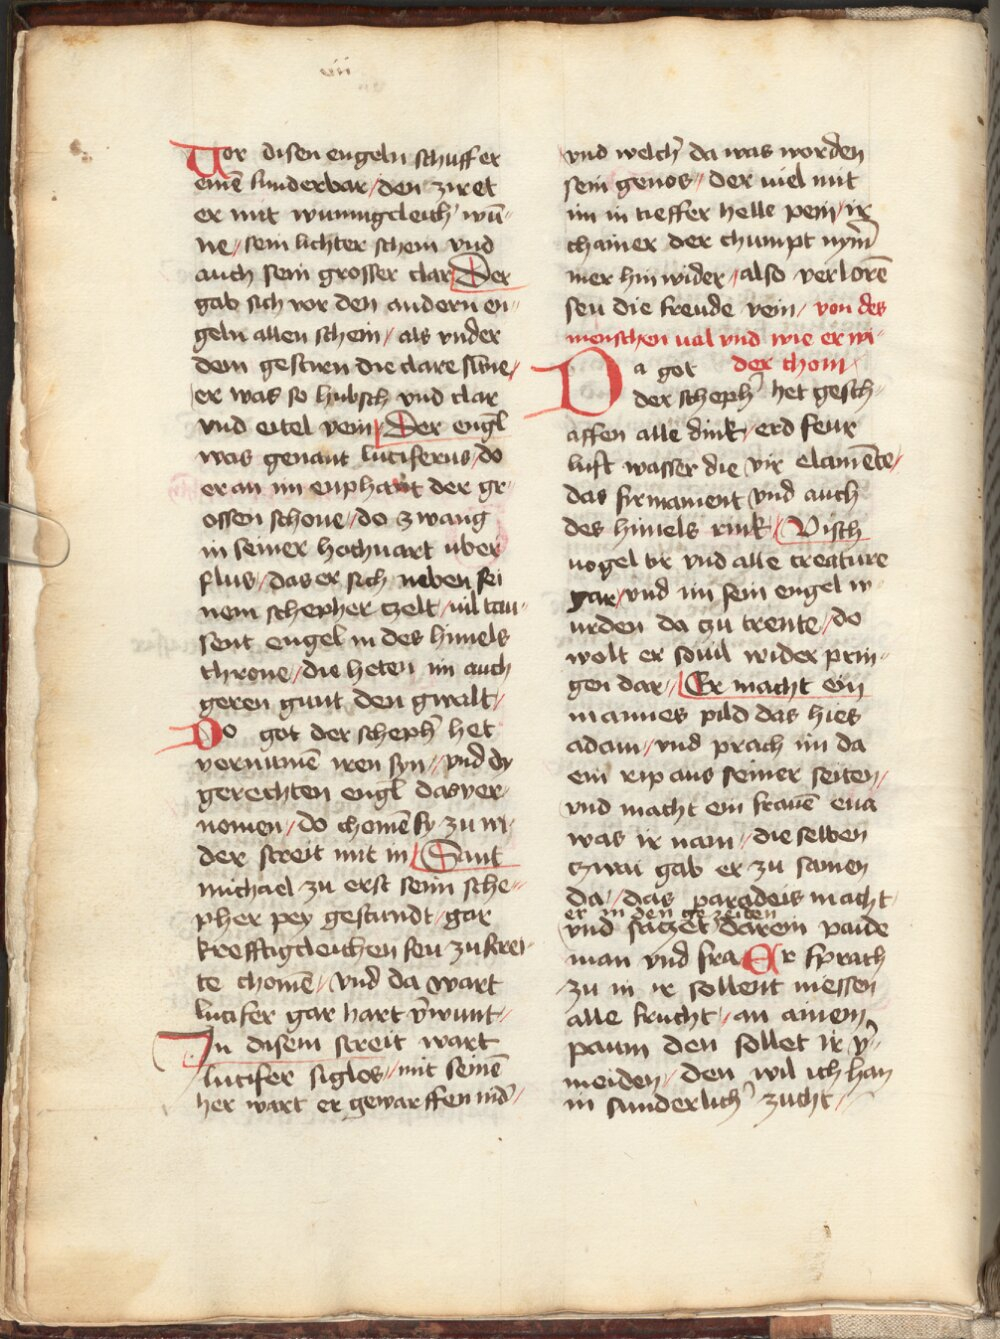 Vor disen engeln schuff er
einē sunderbar / den ziret
er mit wunnigcleich' wū⸗
ne / sein lichter schein vnd
auch sein grosser clar Der
gab sich vor den andern en⸗
geln allen schein / als vnder
dem gestirn die clare
er was so hubsch vnd clar
vnd eitel rein / Der engl
was genant luciferus / do
er an im enphant der gr⸗
ossen schone / do zwang
in seiner hochuart uber
flus / das er sich neben sei
nem schepher tzelt / uil tau⸗
sent engel in des himels
throne / die heten im auch
geren gunt den gwalt /
Do got der scheph' het
vernumē iren syn / vnd dy
gerechten engl das ver⸗
nomen / do chomē sy zu wi⸗
der streit mit in / Sant
michael zu erst seim sche⸗
pher pey gestundt / gar
krefftigcleichen seu zu strei⸗
te chomē / vnd da wart
lucifer gar hart v'wunt /
In disem streit wart
lucifer siglos / mit seinē
her wart er gewarffen nid' /
vnd welch' da was worden
sein genos / der uiel mit
im in tieffer helle pein / ir
chainer der chumpt nym̄
mer hin wider / also verlorē
seu die freude rein / von des
menschen ual vnd wie er wi⸗
der chom
Da got
der scheph' het gesch⸗
affen alle dink / erd feur
luft wasser die vir elamēte /
das firmament vnd auch
des himels rink / Visch
uogel tir vnd alle creature
gar / vnd im sein engel w⸗
urden da zu trente / do
wolt er souil wider prin⸗
gen dar / Er macht ein
mannes pild das hies
adam / vnd prach im da
ein rip aus seiner seiten /
vnd macht ein frauē eua
was ir nam / die selben
tzwai gab er zu samen
da / das paradeis macht
er in den gezeiten
vnd satzet darein paide
man vnd fra Er sprach
zu in ir sollent niessen
alle frucht / an ainem
paum den sollet ir v'⸗
meiden / den wil ich han
in sunderlich' zucht /